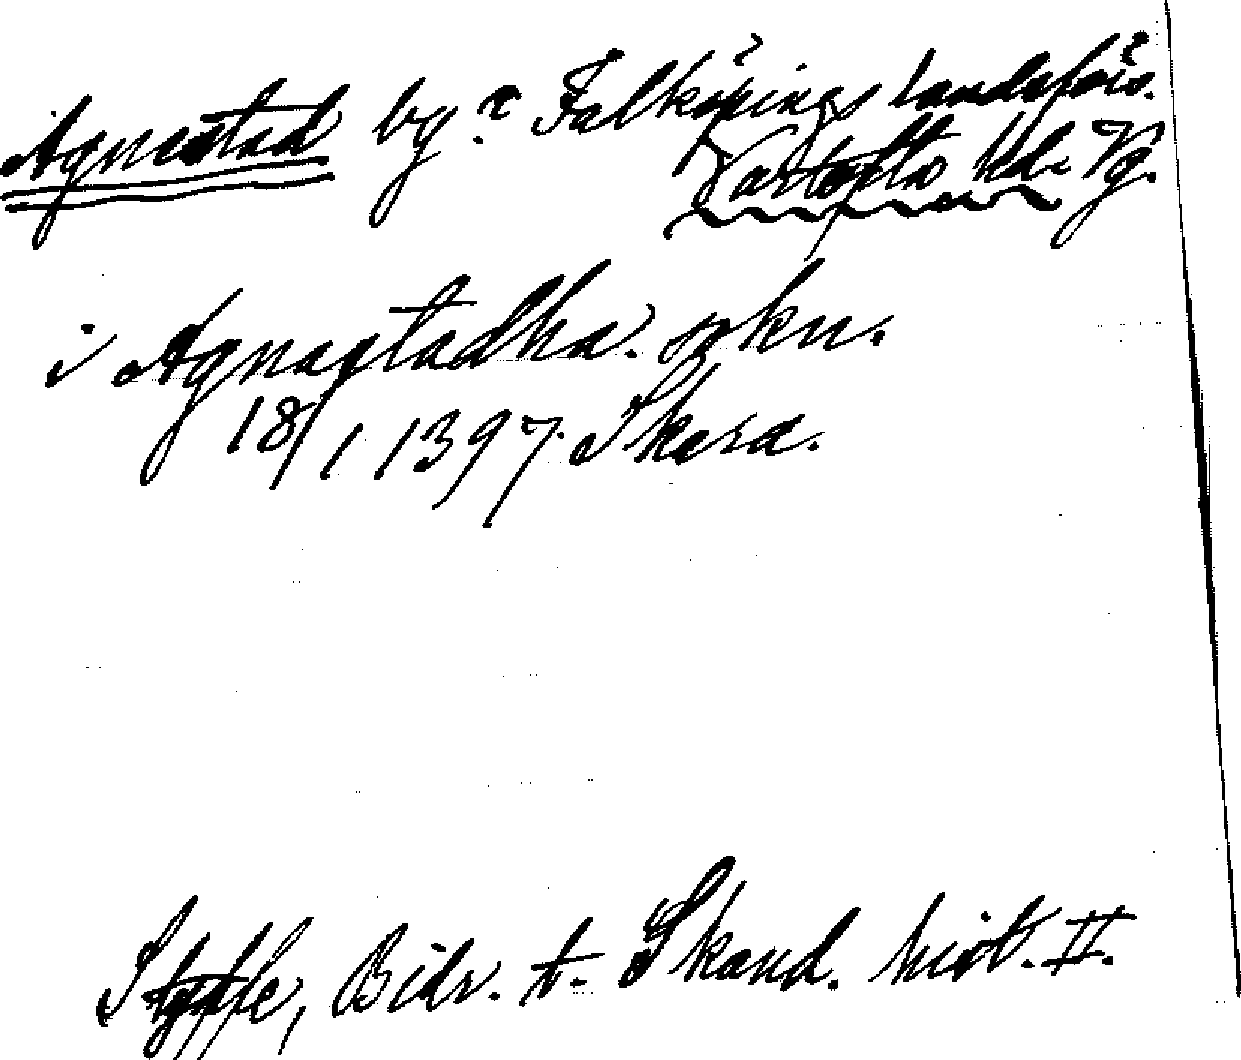 Agnestad by? Falköpings landsförs.
Vartofta hd. Vg.
i Agnastadha. sokn.
18/1 1397. Skara.
Styffe, Bidr. t. Skand. hist. II.